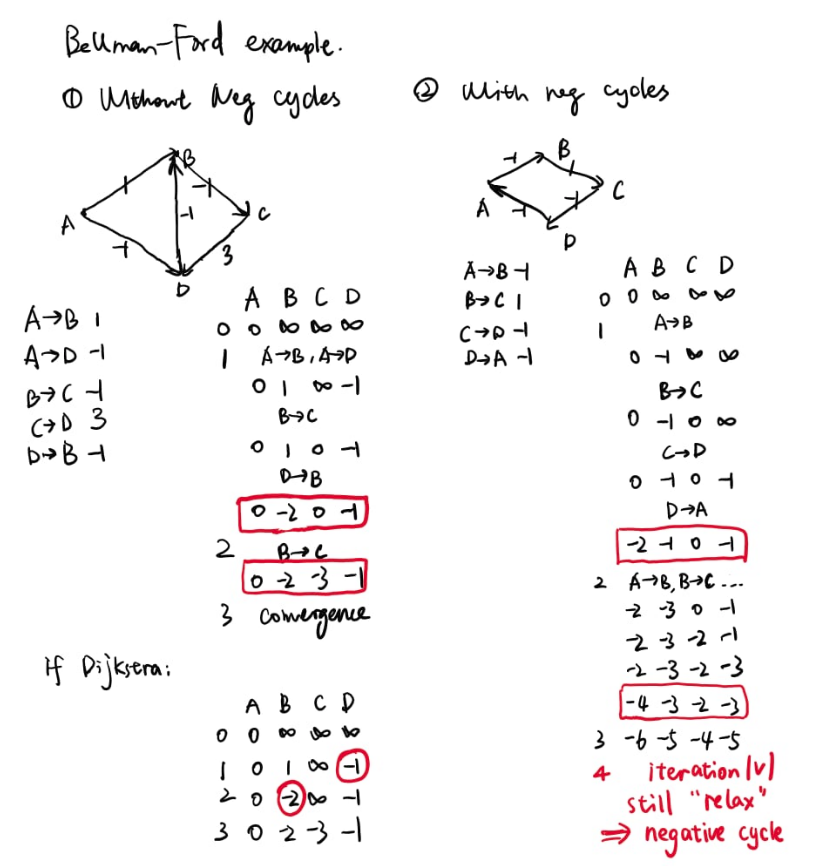 Bellman-Ford example.
① Without Neg cycles
B
1
-1
A
-1
C
-1
3
D
A→B 1
A→D -1
B→C -1
C→D 3
D→B -1
A B C D
0 0 ∞ ∞ ∞
1 A→B, A→D
0 1 ∞ -1
B→C
0 1 0 -1
D→B
0 -2 0 -1
2 B→C
0 -2 -3 -1
3 convergence
If Dijkstra:
A B C D
0 0 ∞ ∞ ∞
1 0 1 ∞ -1
2 0 -2 ∞ -1
3 0 -2 -3 -1
② With neg cycles
-1
B
1
C
A
-1
-1
D
A→B -1
B→C 1
C→D -1
D→A -1
A B C D
0 0 ∞ ∞ ∞
1 A→B
0 -1 ∞ ∞
B→C
0 -1 0 ∞
C→D
0 -1 0 -1
D→A
-2 -1 0 -1
2 A→B, B→C ...
-2 -3 0 -1
-2 -3 -2 -1
-2 -3 -2 -3
-4 -3 -2 -3
3 -6 -5 -4 -5
4 iteration |V|
still "relax"
⇒ negative cycle